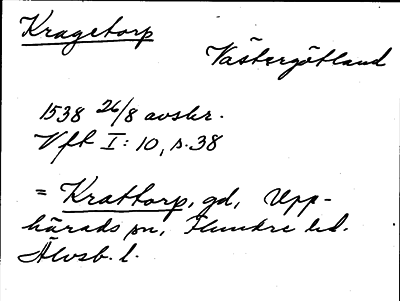 Kragetorp
Västergötland
1538 26/8 avskr.
Vft I: 10, s. 38
= Krattorp, gd, Upp-
härads sn, Flundre hd.
Älvsb. l.